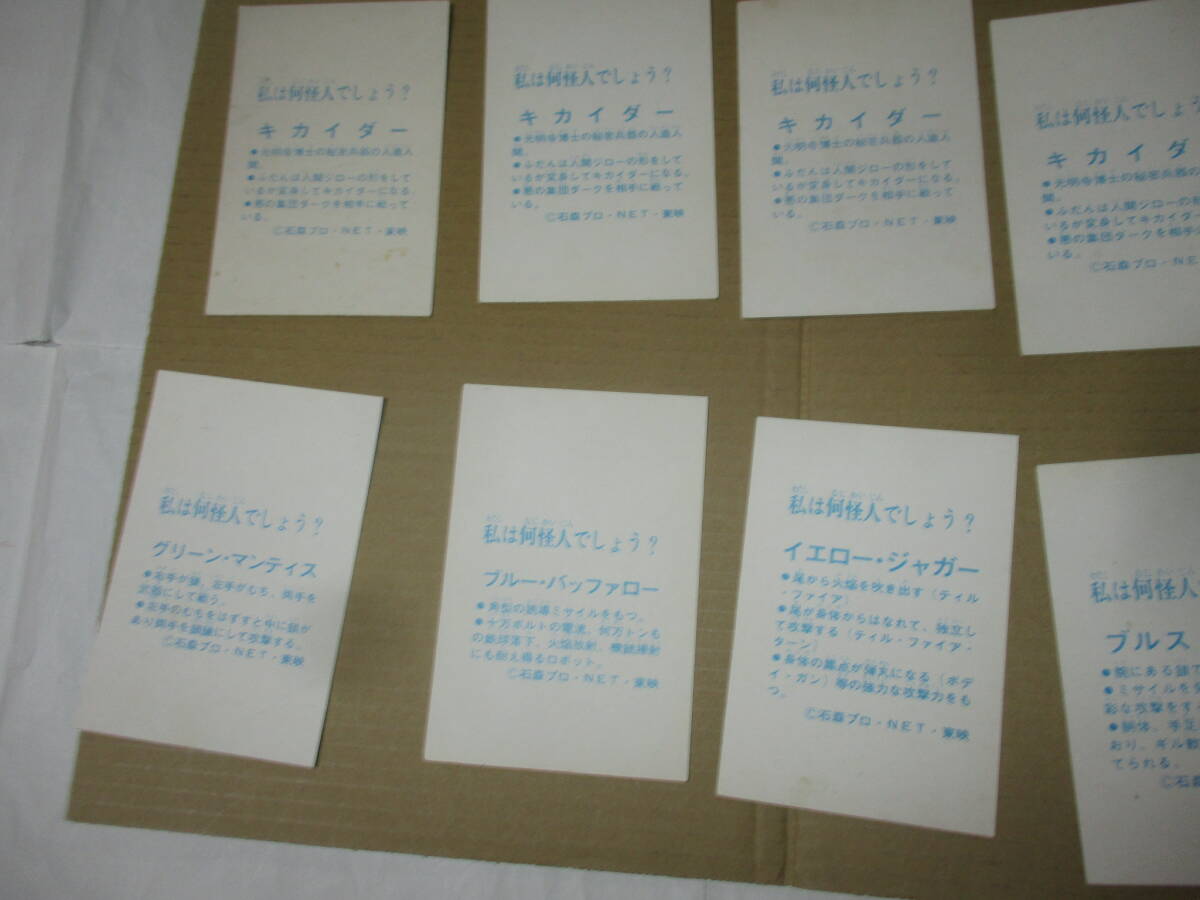 私は何怪人でしょう?
キカイダー
●光明寺博士の秘密兵器の人造人
間。
●ふだんは人間ジローの形をして
いるが変身してキカイダーになる。
●悪の集団ダークを相手に戦って
いる。
©石森プロ・NET・東映
私は何怪人でしょう?
キカイダー
●光明寺博士の秘密兵器の人造人
間。
●ふだんは人間ジローの形をして
いるが変身してキカイダーになる。
●悪の集団ダークを相手に戦って
いる。
©石森プロ・NET・東映
私は何怪人でしょう?
キカイダー
●光明寺博士の秘密兵器の人造人
間。
●ふだんは人間ジローの形をして
いるが変身してキカイダーになる。
●悪の集団ダークを相手に戦って
いる。
©石森プロ・NET・東映
私は何怪人でしょう
キカイダ
●光明寺博士の秘密兵器の
間。
●ふだんは人間ジローの形
いるが変身してキカイダー
●悪の集団ダークを相手に
いる。
©石森プロ・NE
私は何怪人でしょう?
グリーン・マンティス
●右手が鎌、左手がもち、両手を
武器にして戦う。
●左手のもちをはずすと中に鎖が
あり両手を鎖鎌にして攻撃する。
©石森プロ・NET・東映
私は何怪人でしょう?
ブルー・バッファロー
●角型の誘導ミサイルをもつ。
●十万ボルトの電流、何万トンも
の鉄球落下、火焔放射、機銃掃射
にも耐え得るロボット。
©石森プロ・NET・東映
私は何怪人でしょう?
イエロー・ジャガー
●尾から火焔を吹き出す(テイル
・ファイア)
●尾が身体からはなれて、独立し
て攻撃する(テイル・ファイア・
ターン)
●身体の黒点が弾丸になる(ボデ
イ・ガン)等の強力な攻撃力をも
つ。
©石森プロ・NET・東映
私は何怪人
ブルス
●腕にある鎌
●ミサイルを
彩な攻撃をす
●胴体、手足
おり、ギル
てられる。
©石森